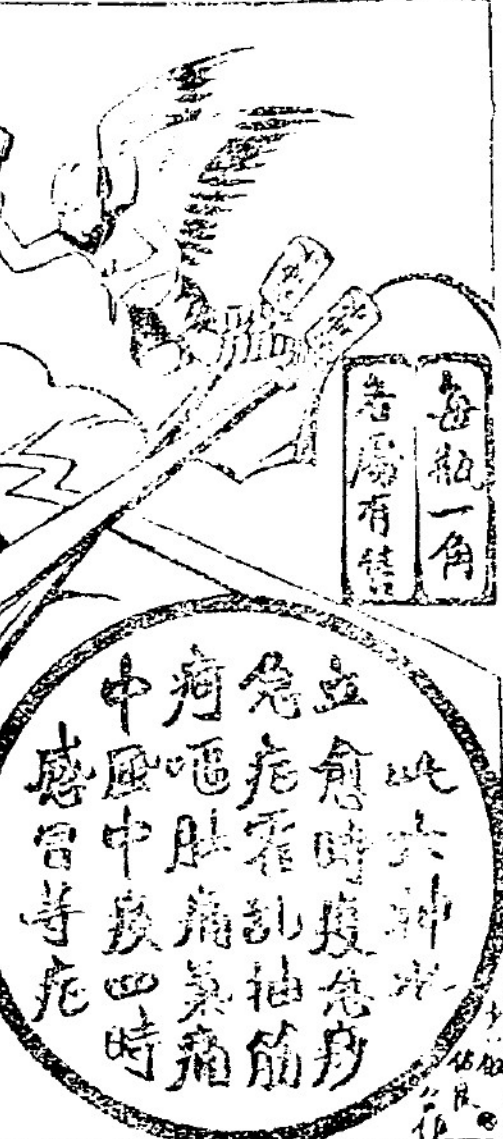 每瓶一角
各處有售
此六神水
立愈時疫急痧
急症霍乱抽筋
疴嘔肚痛氣痛
中風中痰四時
感冒等症